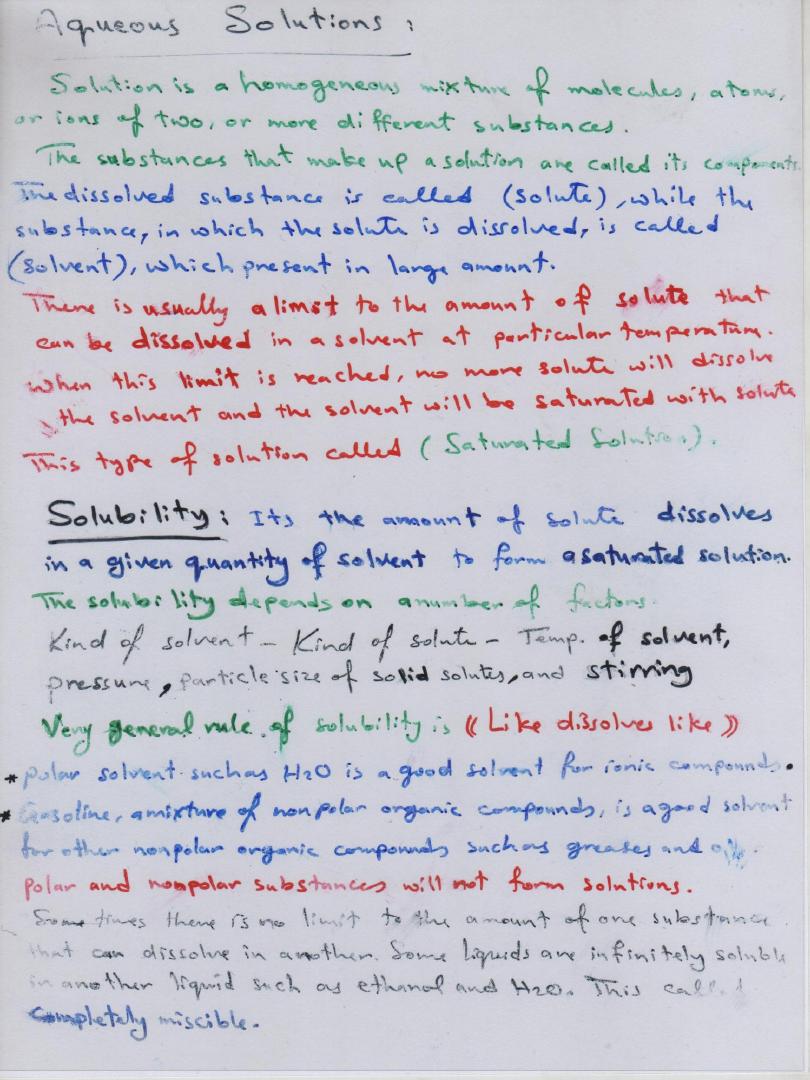 Aqueous Solutions :
Solution is a homogeneous mixture of molecules, atoms,
or ions of two, or more different substances.
The substances that make up a solution are called its components.
The dissolved substance is called (solute), while the
substance, in which the solute is dissolved, is called
(solvent), which present in large amount.
There is usually a limit to the amount of solute that
can be dissolved in a solvent at particular temperature.
When this limit is reached, no more solute will dissolve
the solvent and the solvent will be saturated with solute
This type of solution called (Saturated Solution).
Solubility: Its the amount of solute dissolves
in a given quantity of solvent to form a saturated solution.
The solubility depends on a number of factors.
Kind of solvent - Kind of solute - Temp. of solvent,
pressure, particle size of solid solutes, and stirring
Very general rule of solubility is ((Like dissolves like))
* polar solvent such as H2O is a good solvent for ionic compounds.
* Gasoline, a mixture of nonpolar organic compounds, is a good solvent
for other nonpolar organic compounds such as greases and oils.
polar and nonpolar substances will not form solutions.
Some times there is no limit to the amount of one substance
that can dissolve in another. Some liquids are infinitely soluble
in another liquid such as ethanol and H2O. This called
completely miscible.